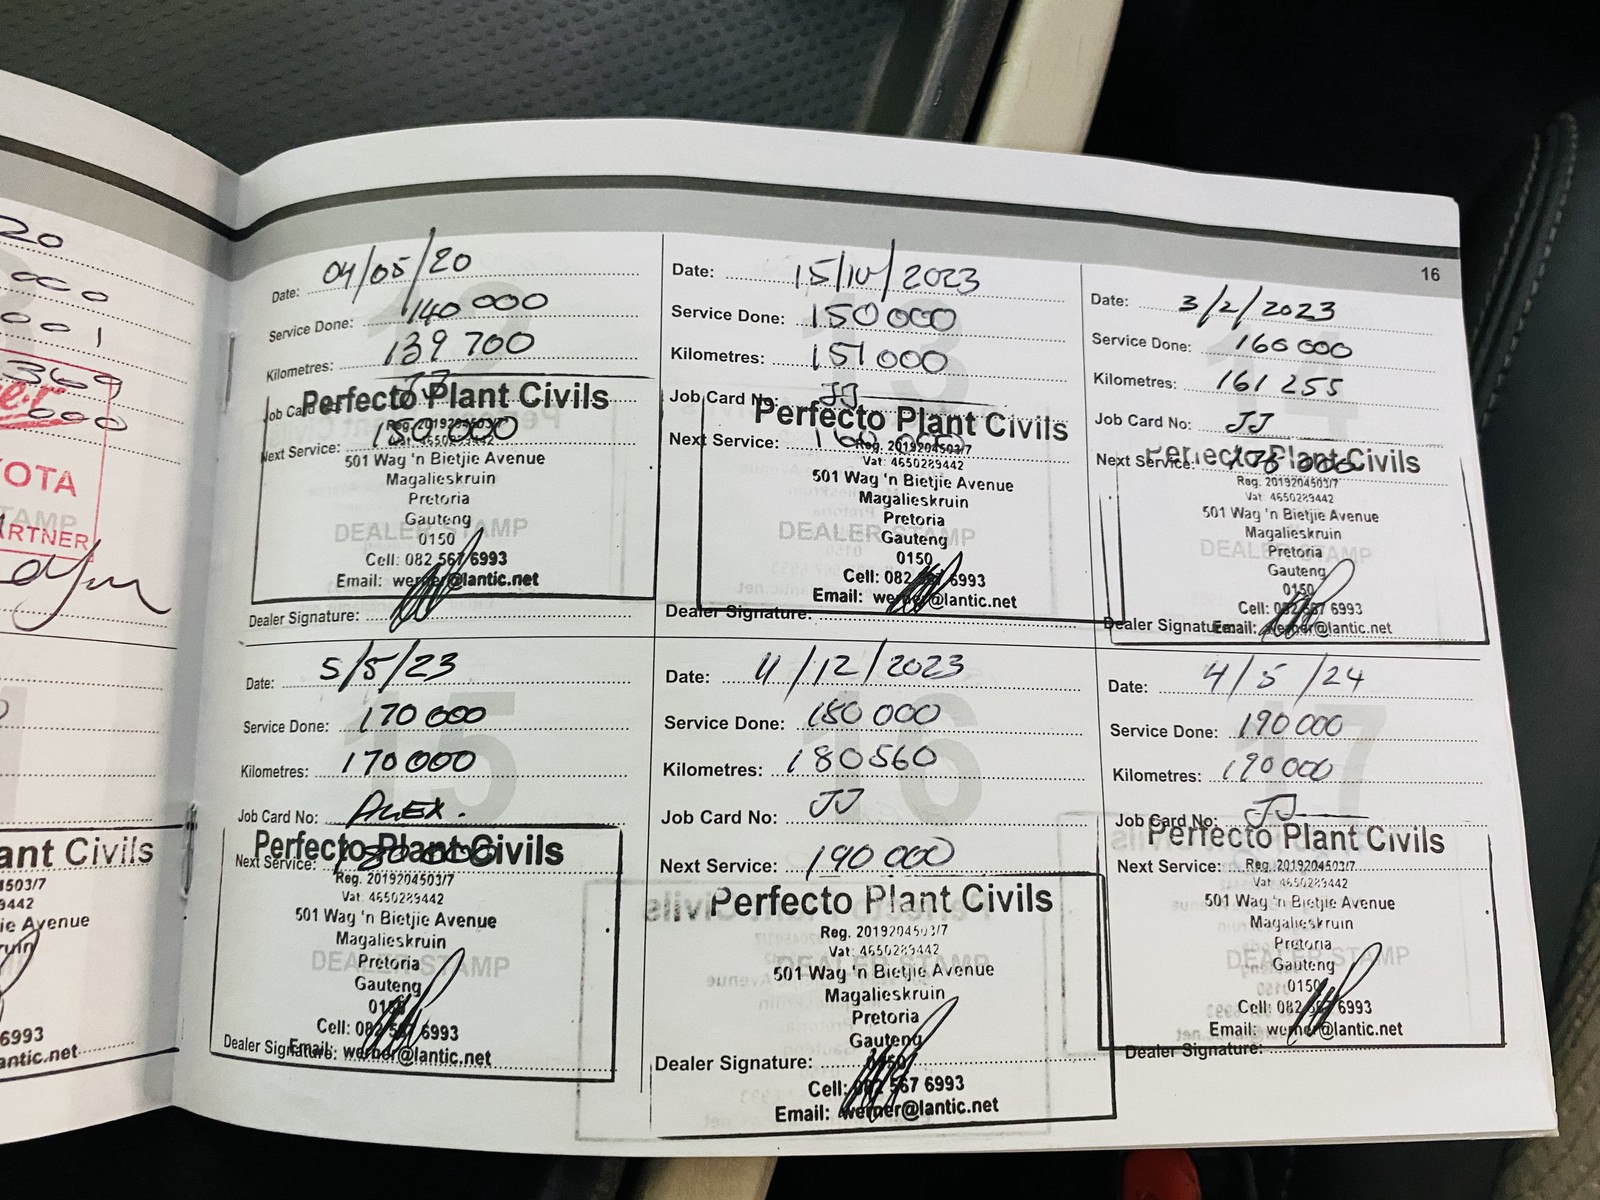 20
000
001
369
000
OTA
ARTNER
ant Civils
4503/7
9442
ie Avenue
6993
antic.net
16
12
Date: 04/05/20
Service Done: 140 000
Kilometres: 139 700
Job Card No: JJ
Next Service: 150 000
Perfecto Plant Civils
Reg. 2019204503/7
Vat: 4650289442
501 Wag 'n Bietjie Avenue
Magalieskruin
Pretoria
Gauteng
0150
DEALER STAMP
Cell: 082 567 6993
Email: werner@lantic.net
Dealer Signature:
13
Date: 15/10/2023
Service Done: 150 000
Kilometres: 151 000
Job Card No: JJ
Next Service: 160 000
Perfecto Plant Civils
Reg. 2019204503/7
Vat: 4650289442
501 Wag 'n Bietjie Avenue
Magalieskruin
Pretoria
DEALER STAMP
Gauteng
0150
Cell: 082 567 6993
Email: werner@lantic.net
Dealer Signature:
14
Date: 3/2/2023
Service Done: 160 000
Kilometres: 161 255
Job Card No: JJ
Next Service: 000
Perfecto Plant Civils
Reg. 2019204503/7
Vat: 4650289442
501 Wag 'n Bietjie Avenue
Magalieskruin
DEALER STAMP
Pretoria
Gauteng
0150
Cell: 082 567 6993
Dealer Signature:
Email: werner@lantic.net
15
Date: 5/5/23
Service Done: 170 000
Kilometres: 170 000
Job Card No: ALEX.
Next Service: 180 000
Perfecto Plant Civils
Reg. 2019204503/7
Vat: 4650289442
501 Wag 'n Bietjie Avenue
Magalieskruin
Pretoria
DEALER STAMP
Gauteng
0150
Cell: 082 567 6993
Dealer Signature:
Email: werner@lantic.net
16
Date: 11/12/2023
Service Done: 180 000
Kilometres: 180560
Job Card No: JJ
Next Service: 190 000
Perfecto Plant Civils
Reg. 2019204503/7
Vat: 4650289442
501 Wag 'n Bietjie Avenue
DEALER STAMP
Magalieskruin
Pretoria
Gauteng
Dealer Signature:
0150
Cell: 082 567 6993
Email: werner@lantic.net
17
Date: 4/5/24
Service Done: 190 000
Kilometres: 190 000
Job Card No: JJ
Perfecto Plant Civils
Next Service:
Reg. 2019204503/7
Vat: 4650289442
501 Wag 'n Bietjie Avenue
Magalieskruin
Pretoria
DEALER STAMP
Gauteng
0150
Cell: 082 567 6993
Email: werner@lantic.net
Dealer Signature: